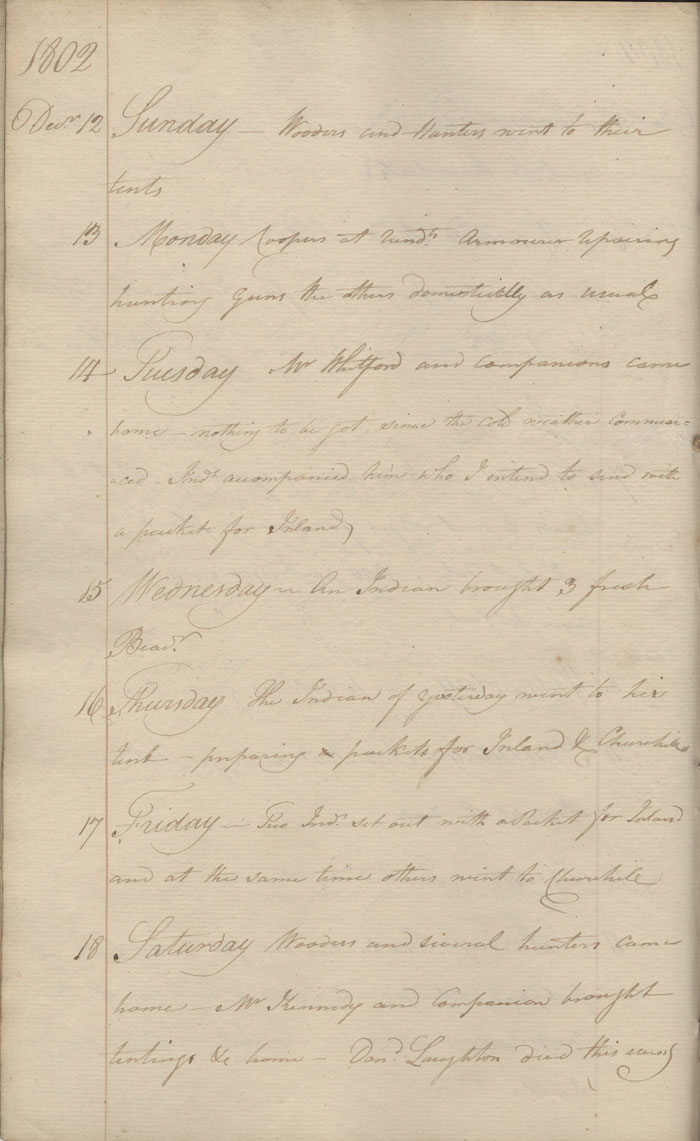 1802
Decr 12 Sunday – Wooders and Hunters went to their
tents
13 Monday Cooper at Sunds. Armourer repairing
hunting Guns the others domestically as usual
14 Tuesday Mr Whitford and companions came
home – nothing to be got since the cold weather commen=
=ced – Inds accompanied him who I intend to send with
a packet for Inland
15 Wednesday – An Indian brought 3 fresh
Beavr
16 Thursday The Indian of yesterday went to his
tent – preparing packets for Inland & Churchill
17 Friday – Two Inds set out with a Packet for Inland
and at the same time others went to Churchill
18 Saturday Wooders and several hunters came
home – Mr Kennedy and Companion brought
tenting &c home – Dand Laughton died this eveng